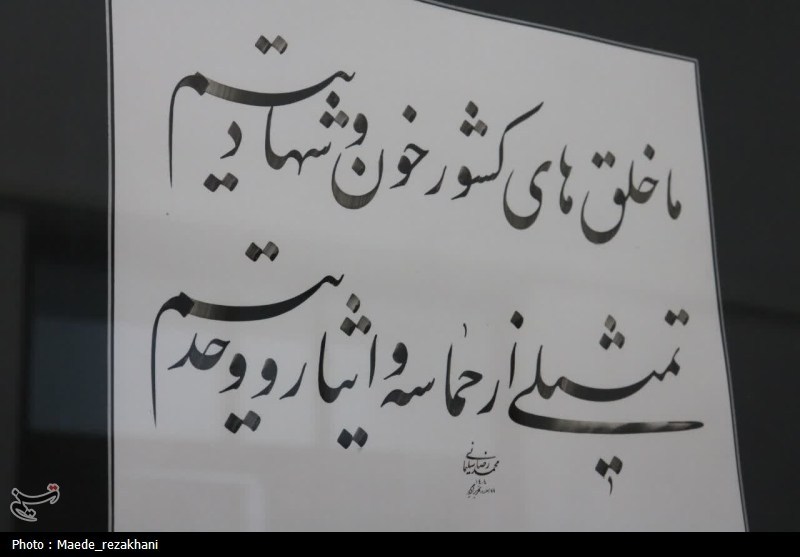 ما خلق های کشور خون و شهادتیم
تمثیلی از حماسه و ایثار و وحدتیم
محمدرضا سلیمانی
تسنیم
Photo : Maede_rezakhani